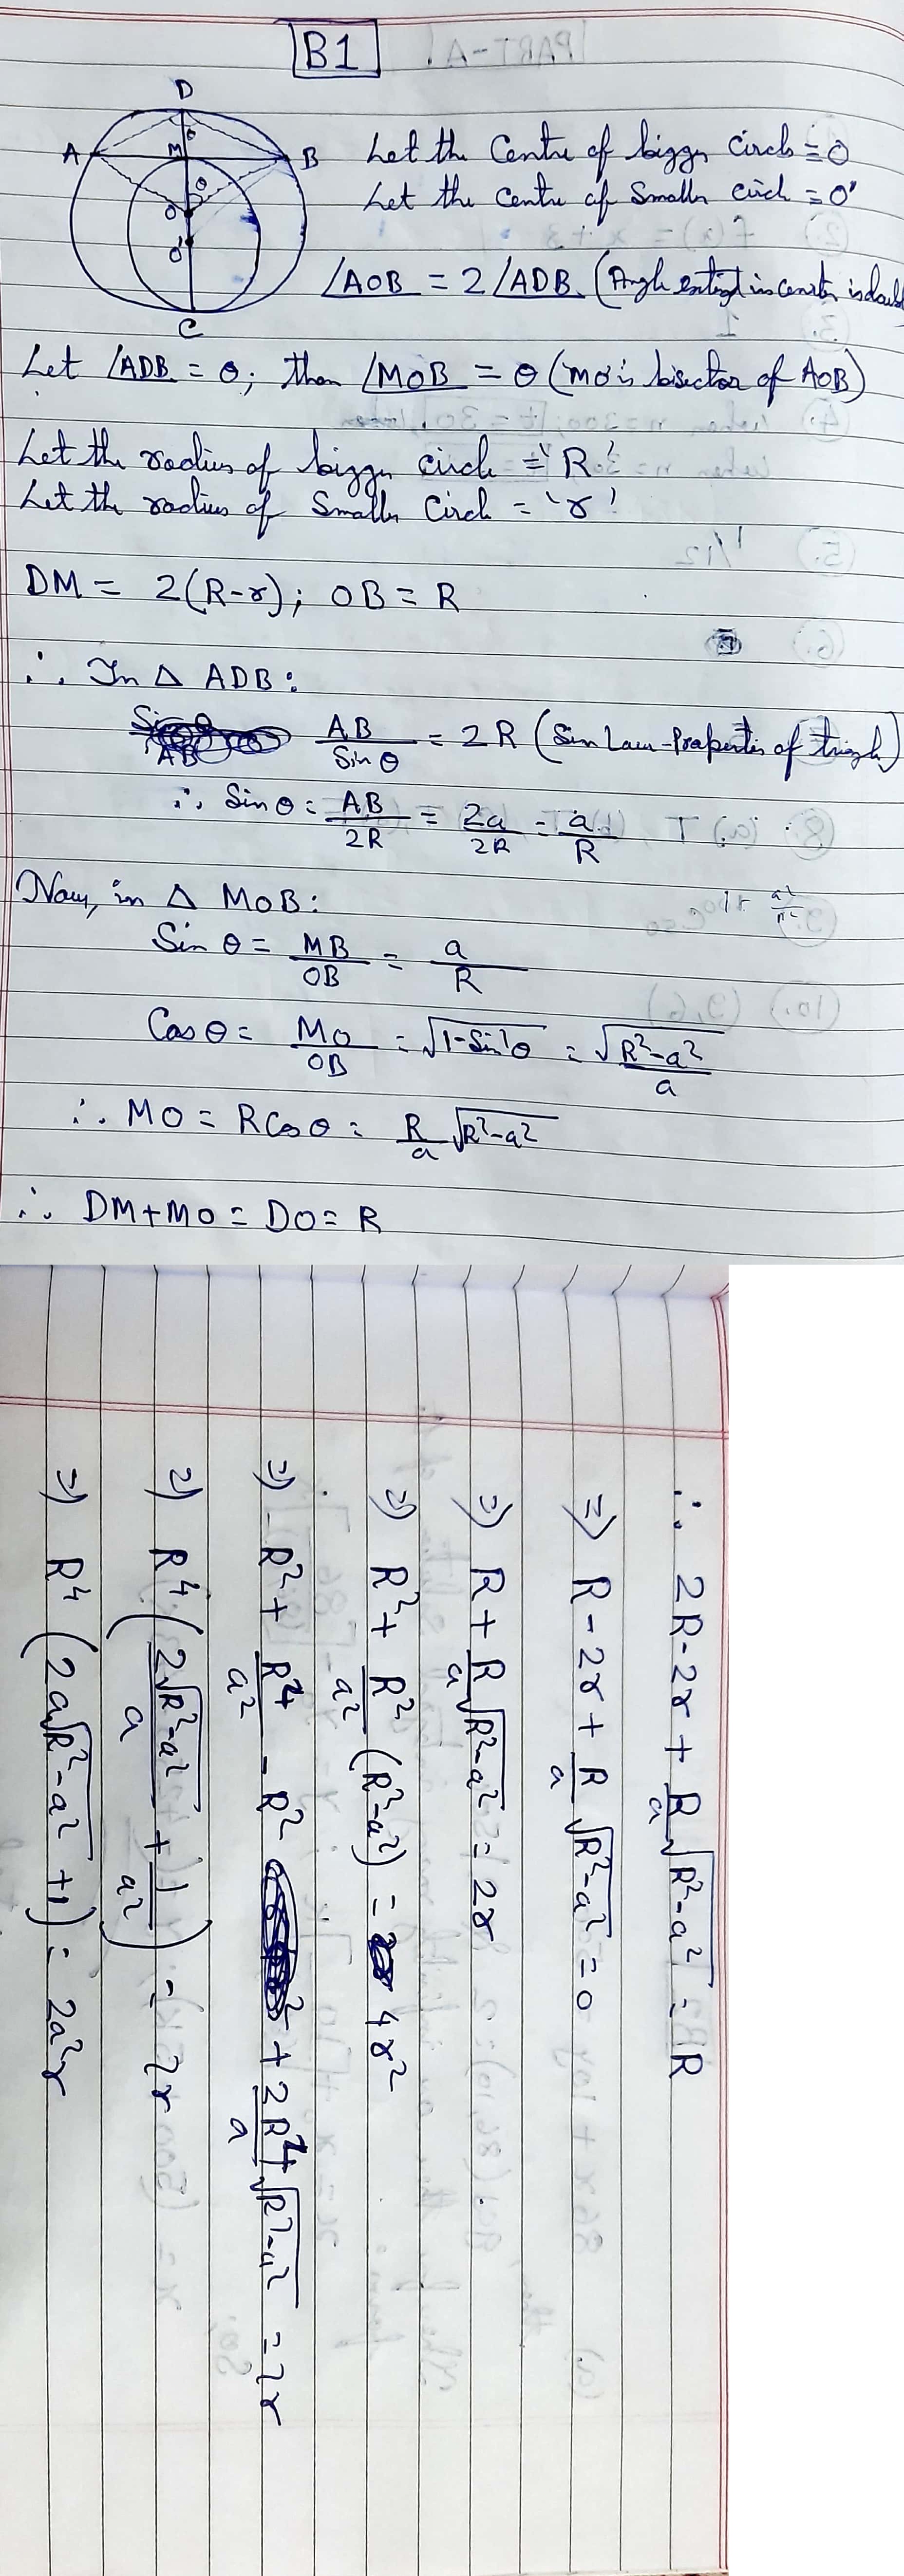 B1
PART-A
D
A M B
θ
θ
O
O'
C
Let the Centre of bigger Circle = O
Let the Centre of Smaller circle = O'
∠AOB = 2∠ADB (Angle in center is double
Let ∠ADB = θ; then ∠MOB = θ (MO is bisector of AOB)
Let the radius of bigger circle = 'R'
Let the radius of Smaller Circle = 'r'
DM = 2(R-r); OB = R
∴ In △ ADB:
AB/Sinθ = 2R (Sin Law-Properties of triangle)
∴ Sinθ = AB/2R = 2a/2R = a/R
Now, in △ MOB:
Sin θ = MB/OB = a/R
Cos θ = MO/OB = √(1-Sin²θ) = √(R²-a²)/a
∴ MO = RCosθ = R/a √(R²-a²)
∴ DM+MO = DO = R
∴ 2R-2r + R/a √(R²-a²) = R
⇒ R-2r + R/a √(R²-a²) = 0
⇒ R + R/a √(R²-a²) = 2r
⇒ R² + R²/a² (R²-a²) = 4r²
⇒ R² + R⁴/a² - R² + 2R⁴/a √(R²-a²) = 2r
⇒ R⁴ (2√(R²-a²)/a + 1/a²) = 2r
⇒ R⁴ (2a√(R²-a²) + 1) = 2a²r